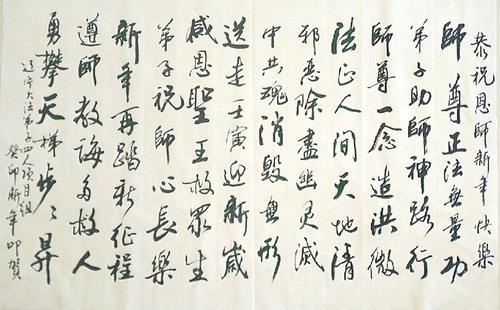 恭祝恩師新年快樂
師尊正法無量功
弟子助師神路行
師尊一念造洪微
法正人間天地清
邪惡除盡幽灵滅
中共魂消毀無形
送走壬寅迎新歲
感恩聖王救眾生
弟子祝師心長樂
新年再踏新征程
遵師教誨多救人
勇攀天梯步々昇
辽寧大法弟子四人項目組
癸卯新年叩賀